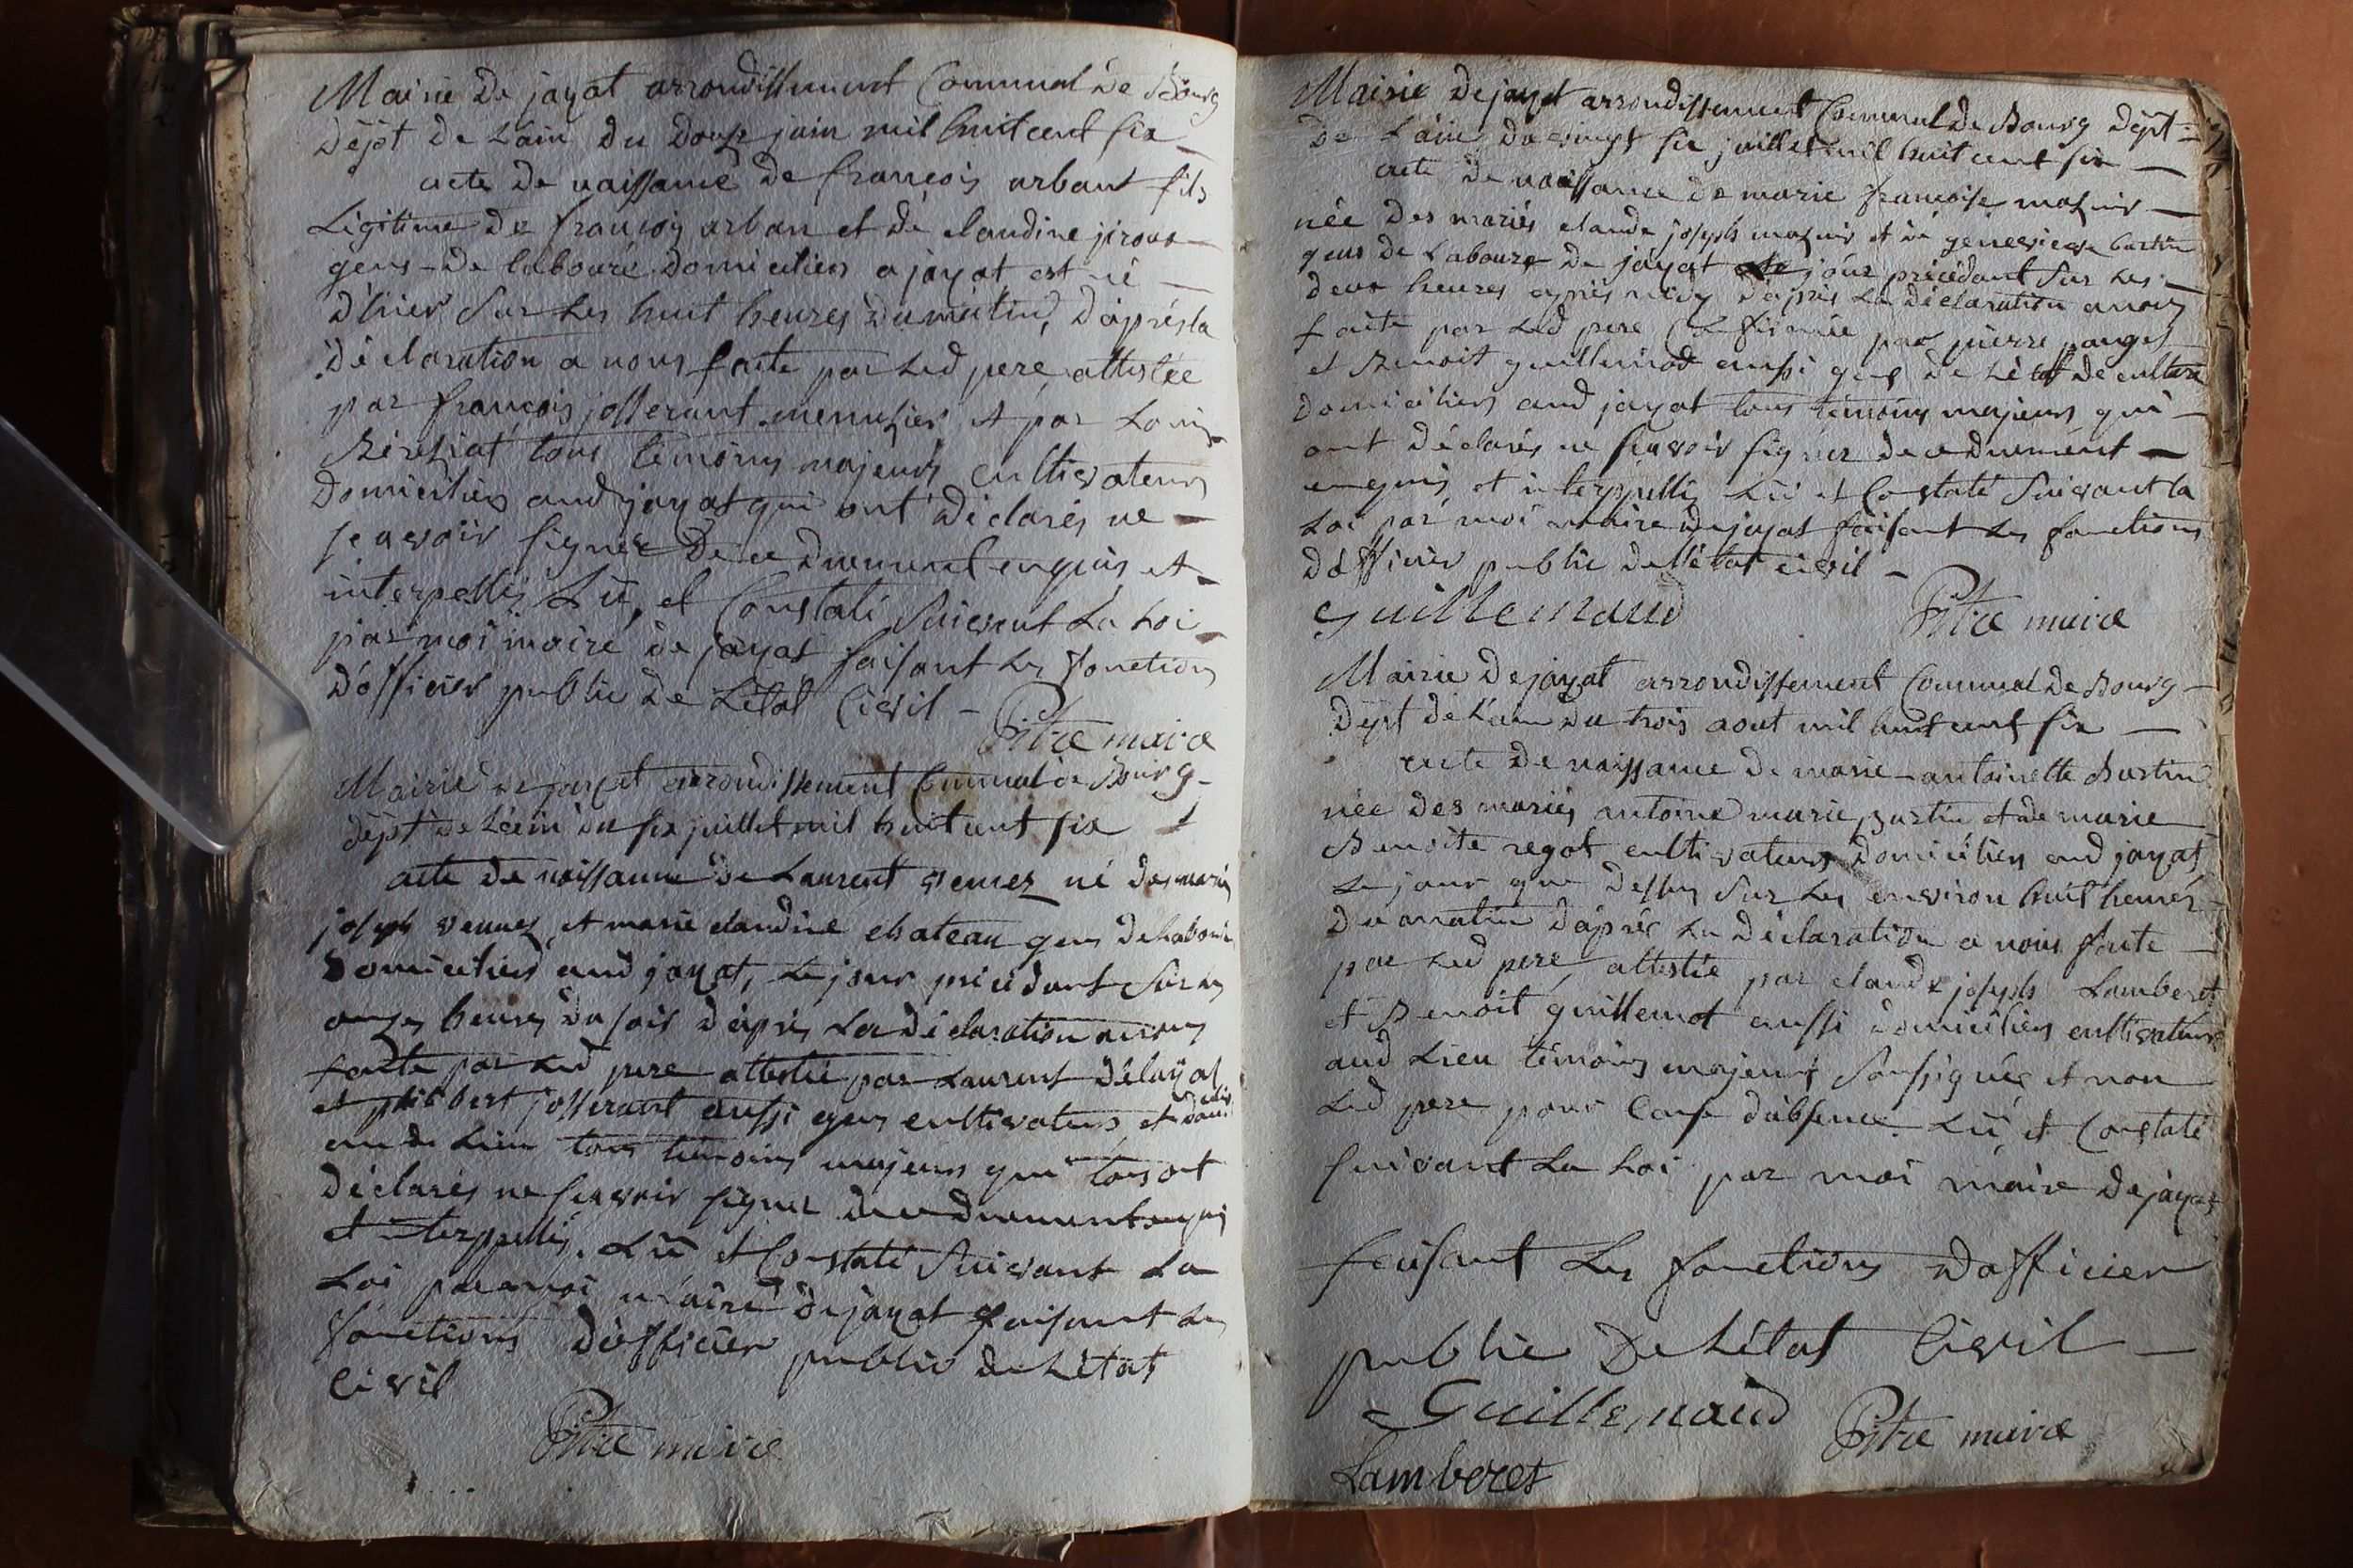 Mairie De jayat arrondissement Communal de Bourg
Dépt De L'ain Du Douze juin mil huit cent six
acte De naissance De françois arbant fils
Légitime De françois arban et de claudine
gens De labouré domiciliés a jayat est né
D'hier sur les huit heures Du matin, D'après la
Déclaration a nous faite par Led pere, attestée
par françois josserant menuzier et par Louis
tous témoins majeurs cultivateurs
Domiciliés aud jayat qui ont Déclarés ne
scavoir signer De ce Dument enquis et
interpellés Lû, et Constaté suivant La Loi
par moi maire de jayat faisant les fonctions
d'officier public De L'état Civil
Pitre maire
Mairie De jayat arrondissement Communal de Bourg
dépt De L'ain du six juillet mil huit cent six
acte De naissance De Laurent né des mariés
joseph et marie claudine chateau gens De labour
Domiciliés aud jayat, Le jour précédant sur les
onze heures Du soir D'après La déclaration a nous
faite par Led pere attestée par Laurent Délayat
et philibert josserant aussi gens cultivateurs et
au dt Lieu tous témoins majeurs qui tous ont
Déclarés ne scavoir signer De ce Dument enquis
et interppellés. Lû et Constaté suivant La
Loi par moi maire De jayat faisant les
fonctions d'officier public De L'état
Civil
Pitre maire
Mairie De jayat arrondissement Communal De Bourg Dépt
De L'ain Du vingt six juillet mil huit cent six
acte De naissance De marie françoise
née Des mariés claude joseph et de genevieve bastin
gens De Laboure De jayat jour précédant sur les
deux heures après midy D'après La Déclaration a nous
faite par Led pere par pierre
et Benoit guillemod aussi gens De L'état De culture
Domiciliés aud jayat tous témoins majeurs qui
ont Déclarés ne scavoir signer De ce Dument
enquis et interppellés Lû et Constaté suivant la
Loi par moi maire De jayat faisant les fonctions
D'officier public De L'état civil
Guillemaud Pitre maire
Mairie De jayat arrondissement Communal De Bourg
Dépt de L'ain Du trois aout mil huit cent six
acte De naissance De marie-antoinette Bastin
née Des mariés antoine marie Bastin et De marie
Benoite regat cultivateurs Domiciliés aud jayat
Le jour que Dessus sur les environ huit heures
Du matin D'après La Déclaration a nous faite
par Led pere, attestée par claude joseph Lamberet
et Benoit guillemot aussi Domiciliés cultivateurs
aud Lieu témoins majeurs soussignés et non
Led pere pour Cause d'absence. Lû et Constaté
suivant La Loi par moi maire De jayat
faisant Les fonctions D'officier
public De L'état Civil
Guillemaud Pitre maire
Lamberet